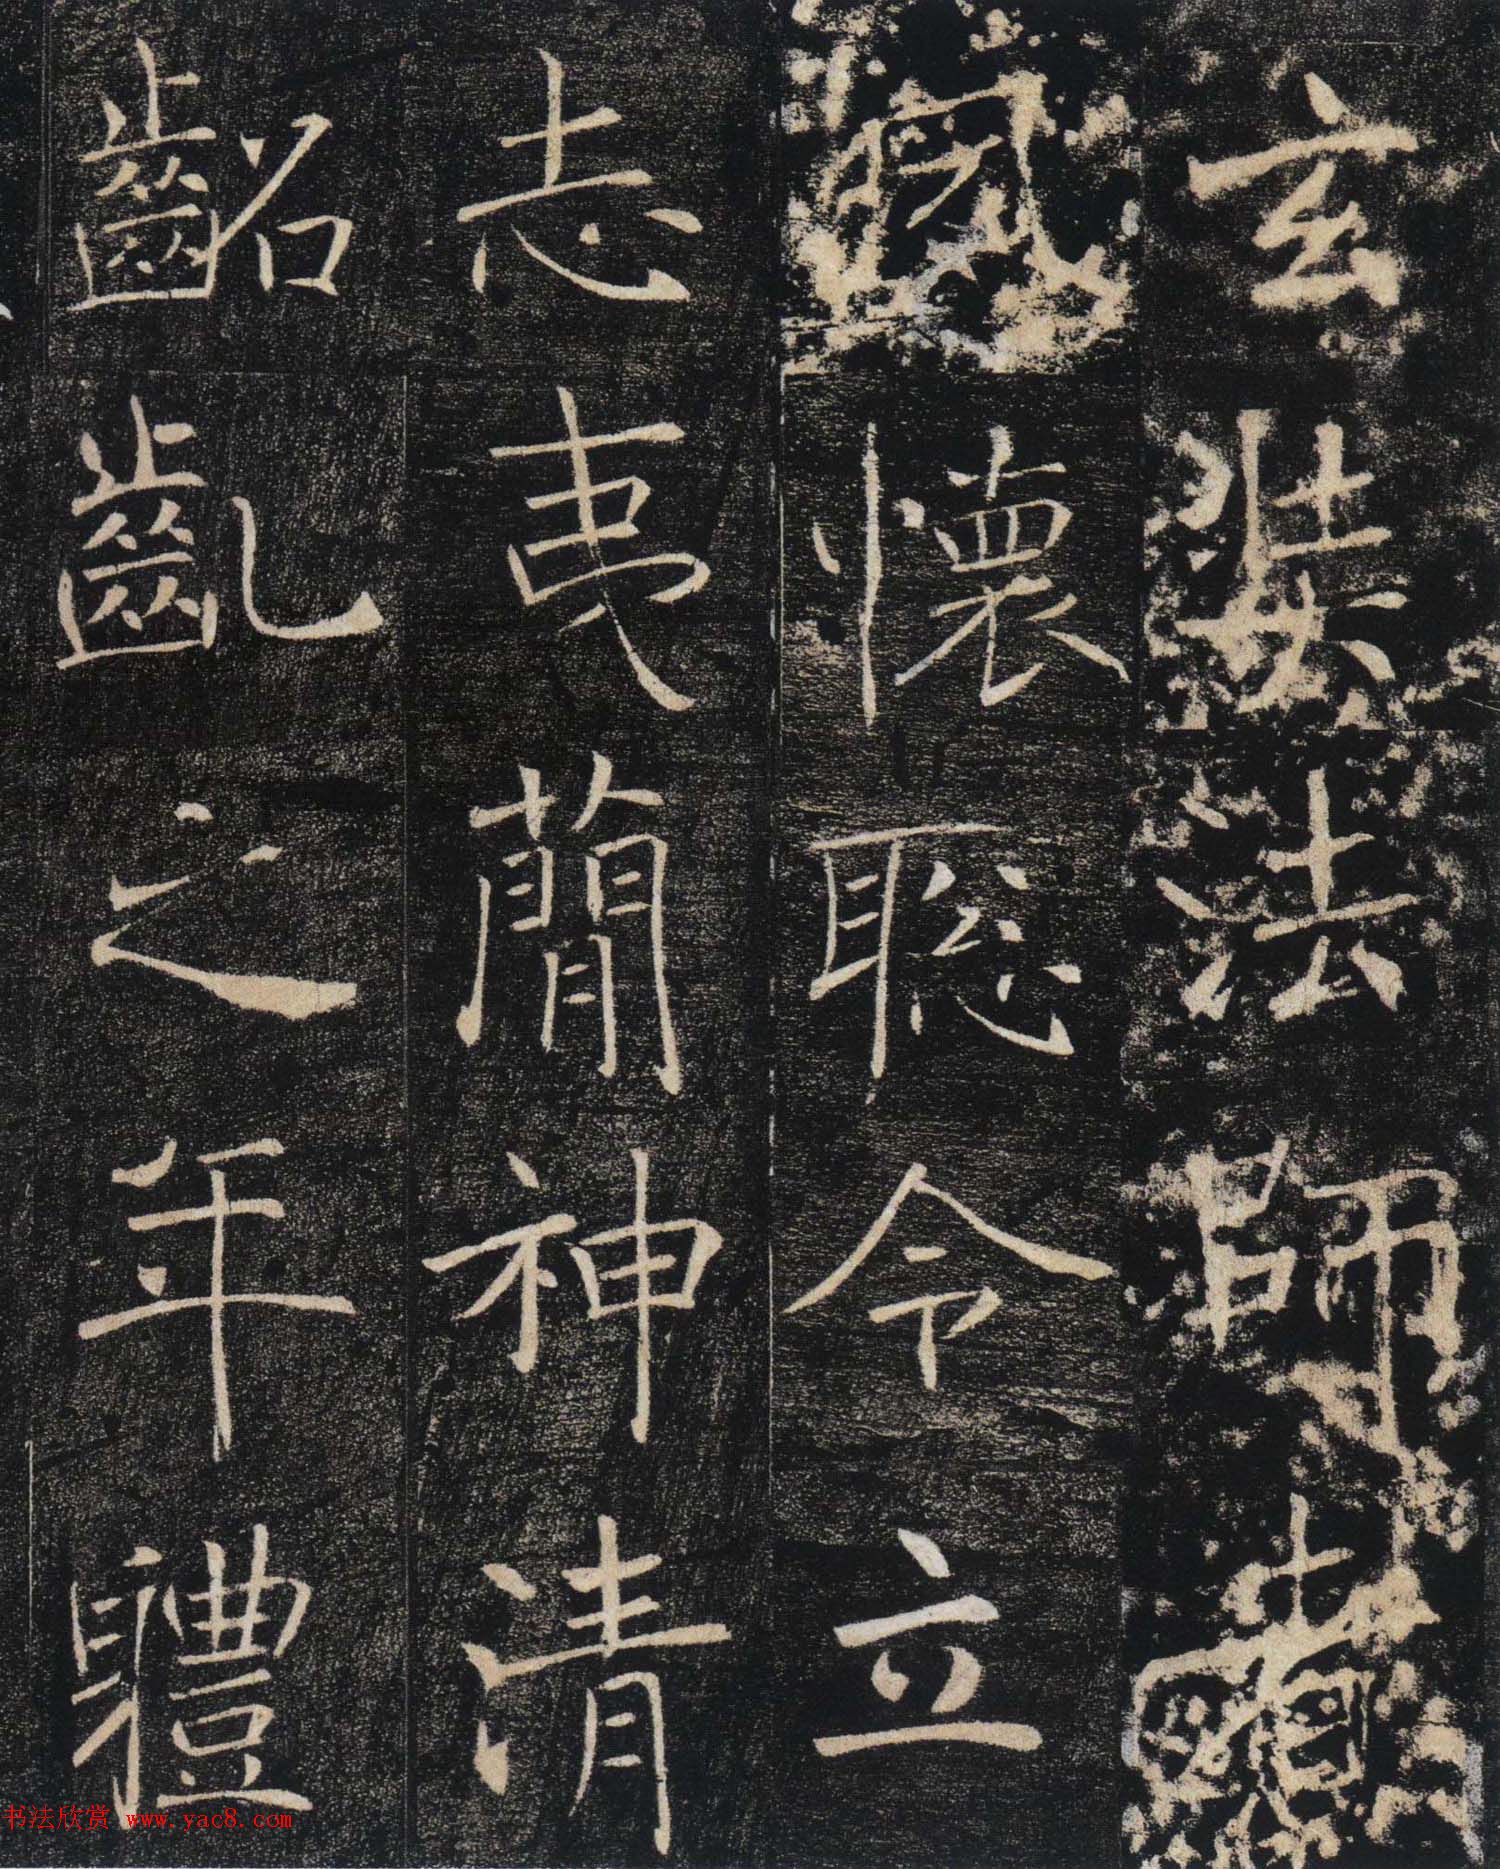 玄奘法師者
夙懷聰令立
志夷簡神清
齠齔之年體
书法欣赏 www.yac8.com